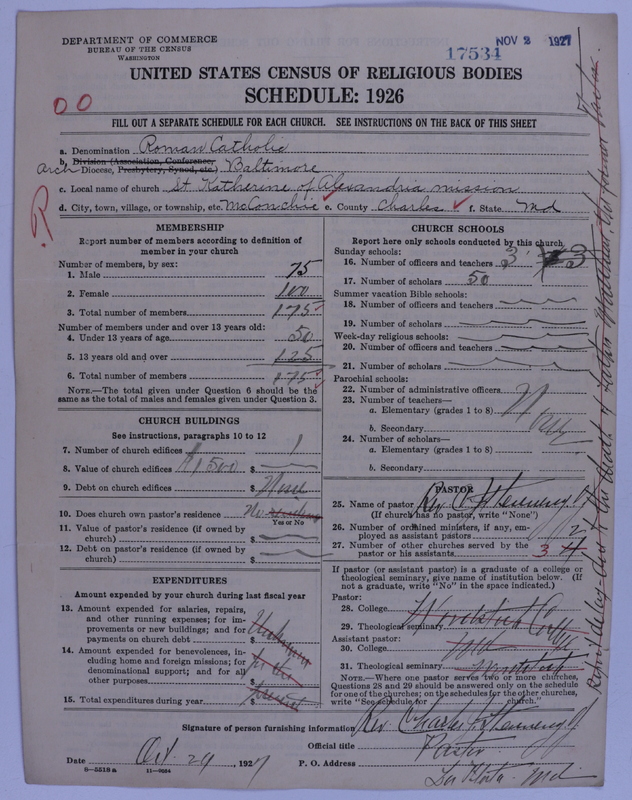 DEPARTMENT OF COMMERCE
BUREAU OF THE CENSUS
WASHINGTON
NOV 2 1927
17534
UNITED STATES CENSUS OF RELIGIOUS BODIES
SCHEDULE: 1926
00
FILL OUT A SEPARATE SCHEDULE FOR EACH CHURCH. SEE INSTRUCTIONS ON THE BACK OF THIS SHEET
a. Denomination Roman Catholic
b. Division (Association, Conference,
arch Diocese, Presbytery, Synod, etc.) Baltimore
c. Local name of church St Katherine of Alexandria mission
d. City, town, village, or township, etc. McConchie e. County Charles f. State Md
MEMBERSHIP
Report number of members according to definition of
member in your church
Number of members, by sex:
1. Male 75
2. Female 100
3. Total number of members 175
Number of members under and over 13 years old:
4. Under 13 years of age 50
5. 13 years old and over 125
6. Total number of members 175
NOTE.—The total given under Question 6 should be the
same as the total of males and females given under Question 3.
CHURCH BUILDINGS
See instructions, paragraphs 10 to 12
7. Number of church edifices 1
8. Value of church edifices $
9. Debt on church edifices $ None
10. Does church own pastor's residence No
Yes or No
11. Value of pastor's residence (if owned by
church) $
12. Debt on pastor's residence (if owned by
church) $
EXPENDITURES
Amount expended by your church during last fiscal year
13. Amount expended for salaries, repairs,
and other running expenses; for im-
provements or new buildings; and for
payments on church debt
14. Amount expended for benevolences, in-
cluding home and foreign missions; for
denominational support; and for all
other purposes
15. Total expenditures during year
CHURCH SCHOOLS
Report here only schools conducted by this church
Sunday schools:
16. Number of officers and teachers 3 3
17. Number of scholars 50
Summer vacation Bible schools:
18. Number of officers and teachers
19. Number of scholars
Week-day religious schools:
20. Number of officers and teachers
21. Number of scholars
Parochial schools:
22. Number of administrative officers
23. Number of teachers—
a. Elementary (grades 1 to 8)
b. Secondary
24. Number of scholars—
a. Elementary (grades 1 to 8)
b. Secondary
PASTOR
25. Name of pastor Rev.
(If church has no pastor, write "None")
26. Number of ordained ministers, if any, em-
ployed as assistant pastors 2
27. Number of other churches served by the
pastor or his assistants 3
If pastor (or assistant pastor) is a graduate of a college or
theological seminary, give name of institution below. (If
not a graduate, write "No" in the space indicated.)
Pastor:
28. College
29. Theological seminary Woodstock College
Assistant pastor:
30. College Md
31. Theological seminary
NOTE.—Where one pastor serves two or more churches,
Questions 28 and 29 should be answered only on the schedule
for one of the churches; on the schedules for the other churches,
write "See schedule for church."
Signature of person furnishing information Rev. Charles
Official title Pastor
Date Oct. 29, 1927
P. O. Address La Plata Md
8—5518a 11—9664